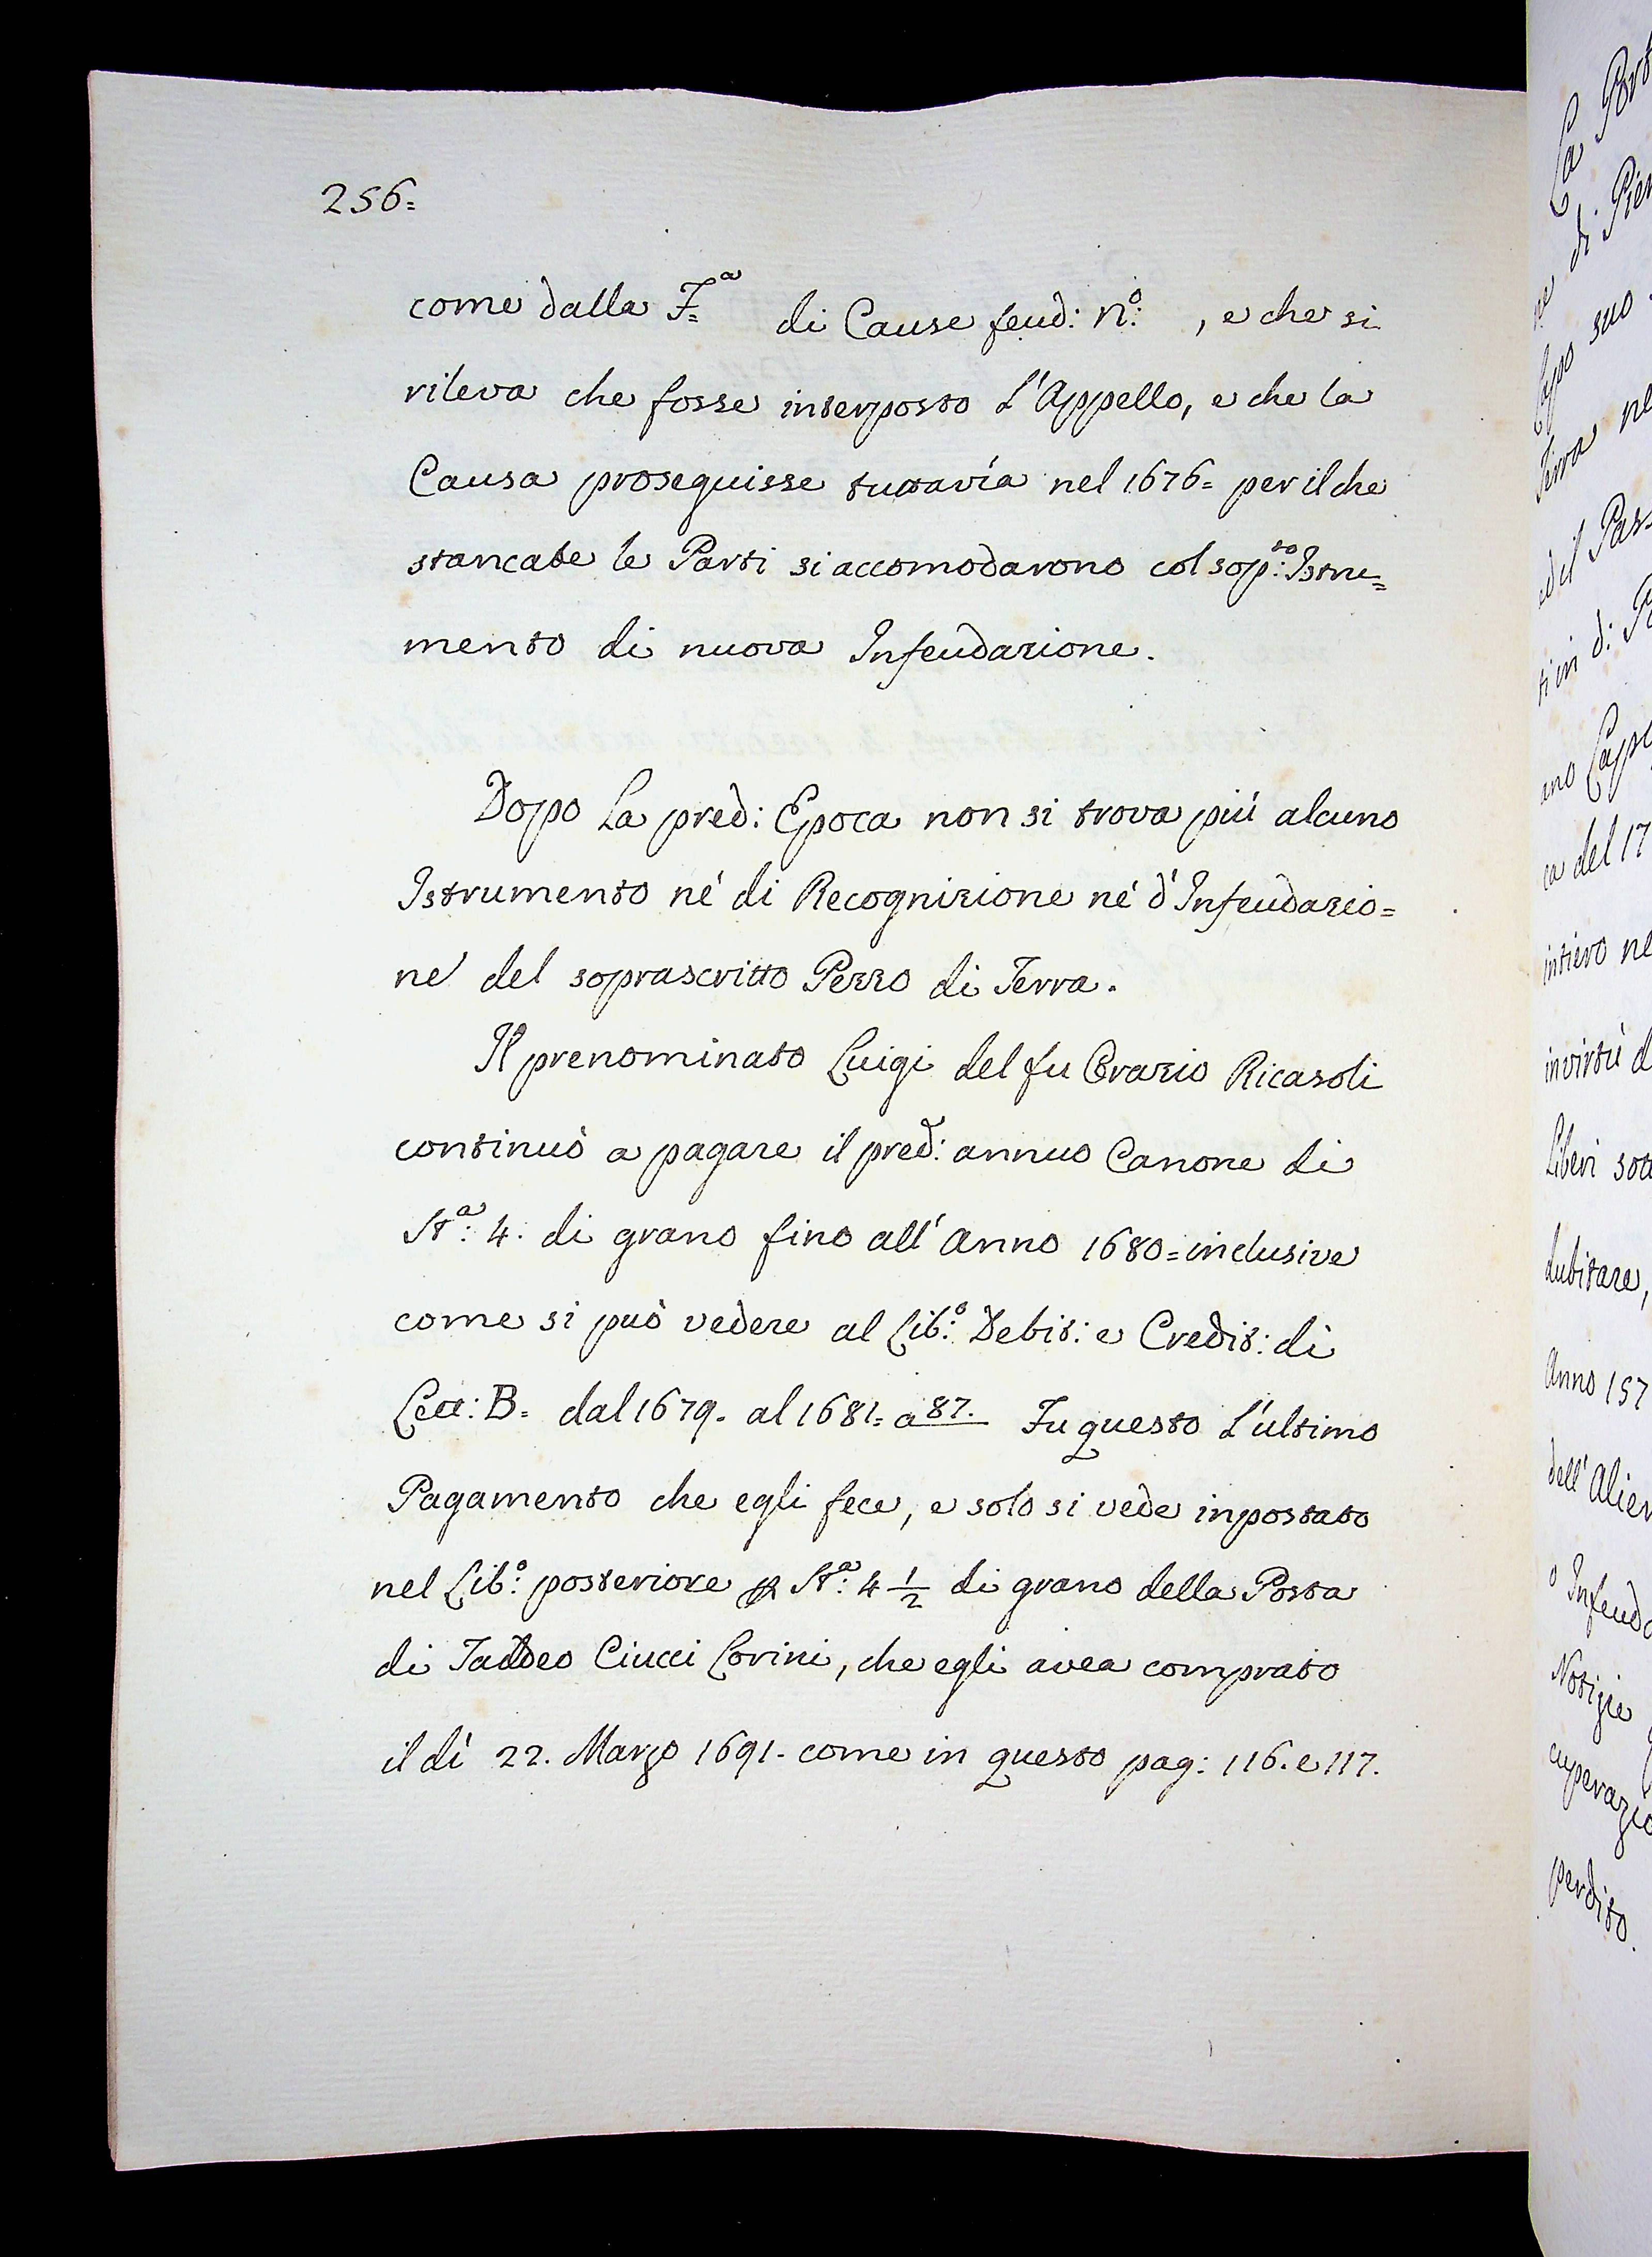 256=
come dalla F=ª di Cause feud: N:º , e che si
rileva che fosse interposto L'Appello, e che la
Causa proseguisse tuttavía nel 1676= per il che
stancate le Parti si accomodarono col sop:to Istru=
mento di nuova Infeudazione.
Dopo La pred: Epoca non si trova più alcuno
Istrumento né di Recognizione né d'Infeudazio=
ne del soprascritto Pezzo di Terra.
Il prenominato Luigi del fu Orazio Ricasoli
continuò a pagare il pred: annuo Canone di
Stª: 4. di grano fino all'Anno 1680= inclusive
come si può vedere al Lib:º Debit: e Credit: di
Lett: B= dal 1679. al 1681= a 87. Fu questo L'ultimo
Pagamento che egli fece, e solo si vede inpostato
nel Lib:º posteriore p Stª: 4 1/2 di grano della Posta
di Taddeo Ciucci Lorini, che egli avea comprato
il dì 22. Marzo 1691. come in questo pag: 116. e 117.
La
di
suo
Terra
ed il
ca del 17
intiero
in virtù
Liberi
dubitare,
Anno 157
Notizie
perdito.